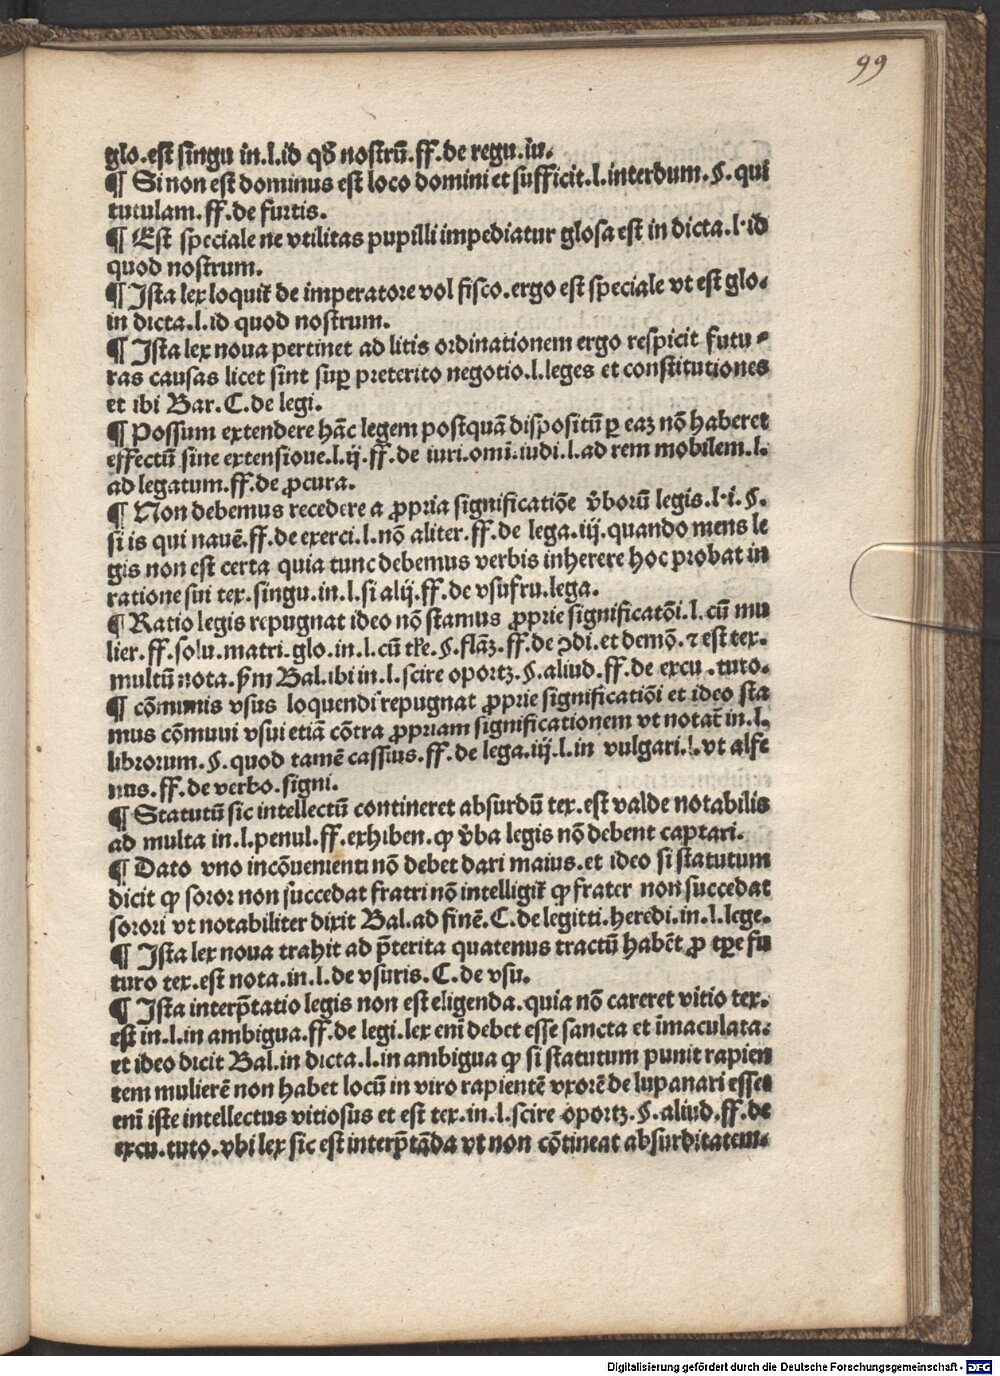 99
glo.est singu in.l.id qđ nostrū.ff.de regu.iu.
¶ Si non est dominus est loco domini et sufficit.l.interdum.§.qui
tutulam.ff.de furtis.
¶ Est speciale ne vtilitas pupilli impediatur glosa est in dicta.l.id
quod nostrum.
¶ Ista lex loquit̄ de imperatore vol fisco.ergo est speciale vt est glo.
in dicta.l.id quod nostrum.
¶ Ista lex noua pertinet ad litis ordinationem ergo respicit futu⸗
ras causas licet sint suꝑ preterito negotio.l.leges et constitutiones
et ibi Bar.C.de legi.
¶ Possum extendere hāc legem postquā dispositū ꝑ eaꝫ nō haberet
effectū sine extensioue.l.ij.ff.de iuri.omī.iudi.l.ad rem mobilem.l.
ad legatum.ff.de ꝓcura.
¶ Non debemus recedere a ꝓpria significatiōe v̄borū legis.l.i.§.
si is qui nauē.ff.de exerci.l.nō aliter.ff.de lega.iij.quando mens le
gis non est certa quia tunc debemus verbis inherere hoc probat in
ratione sui tex.singu.in.l.si alij.ff.de vsufru.lega.
¶ Ratio legis repugnat ideo nō stamus ꝓprie significatōi.l.cū mu
lier.ff.solu.matri.glo.in.l.cū tr̄e.§.flāꝫ.ff.de ꝯdi.et demō.⁊ est tex.
multū nota.ẜm Bal.ibi in.l.scire oportꝫ.§.aliud.ff.de excu.tuto.
¶ cōmunis vsus loquendi repugnat ꝓprie significatiōi et ideo sta
mus cōmuui vsui etiā cōtra ꝓpriam significationem vt notat̄ in.l.
librorum.§.quod tamē cassius.ff.de lega.iij.l.in vulgari.l.vt alfe
nus.ff.de verbo.signi.
¶ Statutū sic intellectū contineret absurdū tex.est valde notabilis
ad multa in.l.penul.ff.exhiben.ꝙ v̄ba legis nō debent captari.
¶ Dato vno incōuenienti nō debet dari maius.et ideo si statutum
dicit ꝙ soror non succedat fratri nō intelligit̄ ꝙ frater non succedat
sorori vt notabiliter dixit Bal.ad finē.C.de legitti.heredi.in.l.lege.
¶ Ista lex noua trahit ad p̄terita quatenus tractū habēt ꝓ tꝑe fu
turo tex.est nota.in.l.de vsuris.C.de vsu.
¶ Ista interp̄tatio legis non est eligenda.quia nō careret vitio tex.
est in.l.in ambigua.ff.de legi.lex eni debet esse sancta et īmaculata.
et ideo dicit Bal.in dicta.l.in ambigua ꝙ si statutum punit rapien
tem mulierē non habet locū in viro rapientē vxorē de lupanari esset
eni iste intellectus vitiosus et est tex.in.l.scire oportꝫ.§.aliud.ff.de
excu.tuto.vbi lex sic est interp̄tāda vt non cōtineat absurditatem.
Digitalisierung gefördert durch die Deutsche Forschungsgemeinschaft - DFG